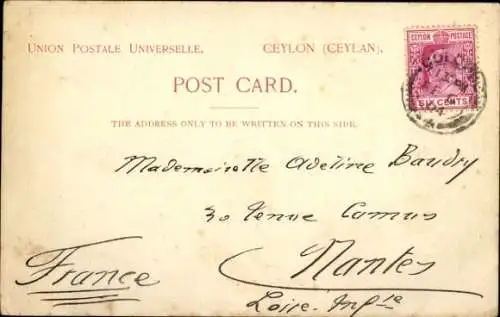 UNION POSTALE UNIVERSELLE. CEYLON (CEYLAN).
CEYLON POSTAGE
SIX CENTS
POST CARD.
THE ADDRESS ONLY TO BE WRITTEN ON THIS SIDE.
Mademoiselle Adeline Baudry
30 Camus
Nantes
France
Loire Infre